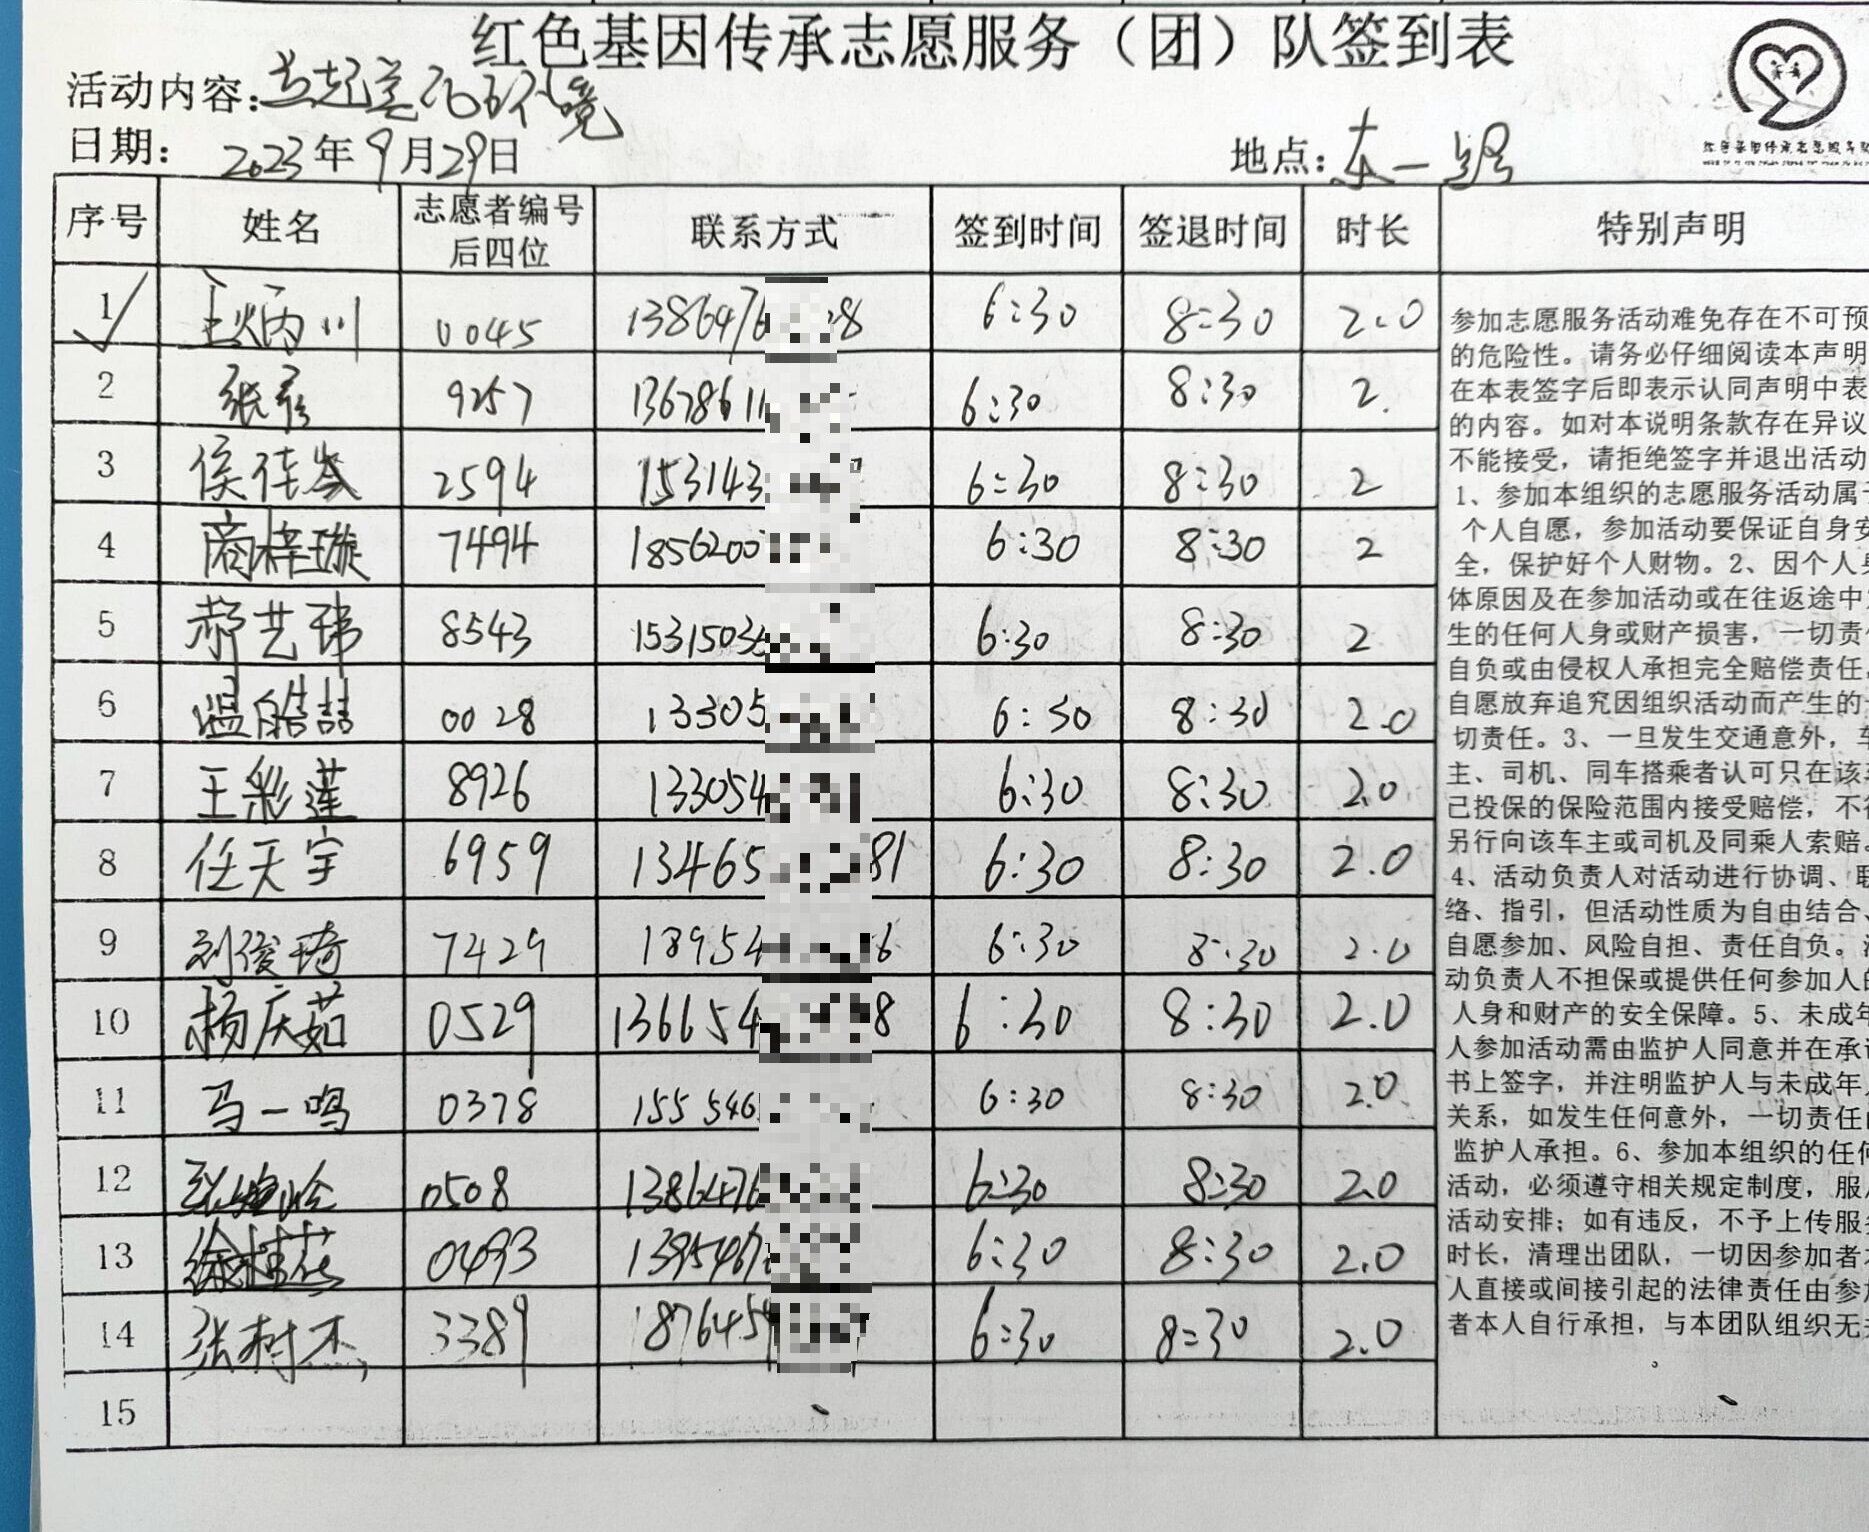 红色基因传承志愿服务（团）队签到表
活动内容:
日期: 2023年9月29日 地点: 东一路
序号 姓名 志愿者编号后四位 联系方式 签到时间 签退时间 时长 特别声明
1 王炳川 0045 1386476 8 6:30 8:30 2.0
2 张彦 9257 1367861 6:30 8:30 2.
3 侯佳岑 2594 153143 6:30 8:30 2
4 商梓璇 7494 1856200 6:30 8:30 2
5 郝艺玮 8543 1531503 6:30 8:30 2
6 温皓喆 0028 13305 6:30 8:30 2.0
7 王彩莲 8926 133054 6:30 8:30 2.0
8 任天宇 6959 13465 81 6:30 8:30 2.0
9 刘俊琦 7429 18954 6 6:30 8:30 2.0
10 杨庆茹 0529 136654 8 6:30 8:30 2.0
11 马一鸣 0378 155546 6:30 8:30 2.0
12 0508 1386476 6:30 8:30 2.0
13 徐桂花 0493 1395467 6:30 8:30 2.0
14 张树杰 3389 1876454 6:30 8:30 2.0
15
参加志愿服务活动难免存在不可预
的危险性。请务必仔细阅读本声明
在本表签字后即表示认同声明中表
的内容。如对本说明条款存在异议
不能接受，请拒绝签字并退出活动
1、参加本组织的志愿服务活动属于
个人自愿，参加活动要保证自身安
全，保护好个人财物。2、因个人身
体原因及在参加活动或在往返途中
生的任何人身或财产损害，一切责任
自负或由侵权人承担完全赔偿责任，
自愿放弃追究因组织活动而产生的
切责任。3、一旦发生交通意外，车
主、司机、同车搭乘者认可只在该车
已投保的保险范围内接受赔偿，不得
另行向该车主或司机及同乘人索赔。
4、活动负责人对活动进行协调、联
络、指引，但活动性质为自由结合、
自愿参加、风险自担、责任自负。活
动负责人不担保或提供任何参加人的
人身和财产的安全保障。5、未成年
人参加活动需由监护人同意并在承诺
书上签字，并注明监护人与未成年人
关系，如发生任何意外，一切责任由
监护人承担。6、参加本组织的任何
活动，必须遵守相关规定制度，服从
活动安排；如有违反，不予上传服务
时长，清理出团队，一切因参加者本
人直接或间接引起的法律责任由参加
者本人自行承担，与本团队组织无关
。